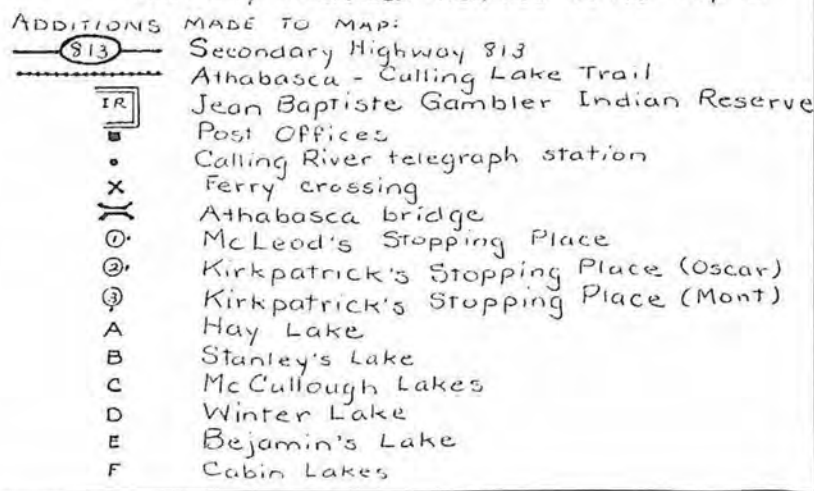 ADDITIONS MADE TO MAP:
813 Secondary Highway 813
Athabasca - Calling Lake Trail
IR Jean Baptiste Gambler Indian Reserve
Post Offices
Calling River telegraph station
X Ferry crossing
Athabasca bridge
1 McLeod's Stopping Place
2 Kirkpatrick's Stopping Place (Oscar)
3 Kirkpatrick's Stopping Place (Mont)
A Hay Lake
B Stanley's Lake
C McCullough Lakes
D Winter Lake
E Bejamin's Lake
F Cabin Lakes